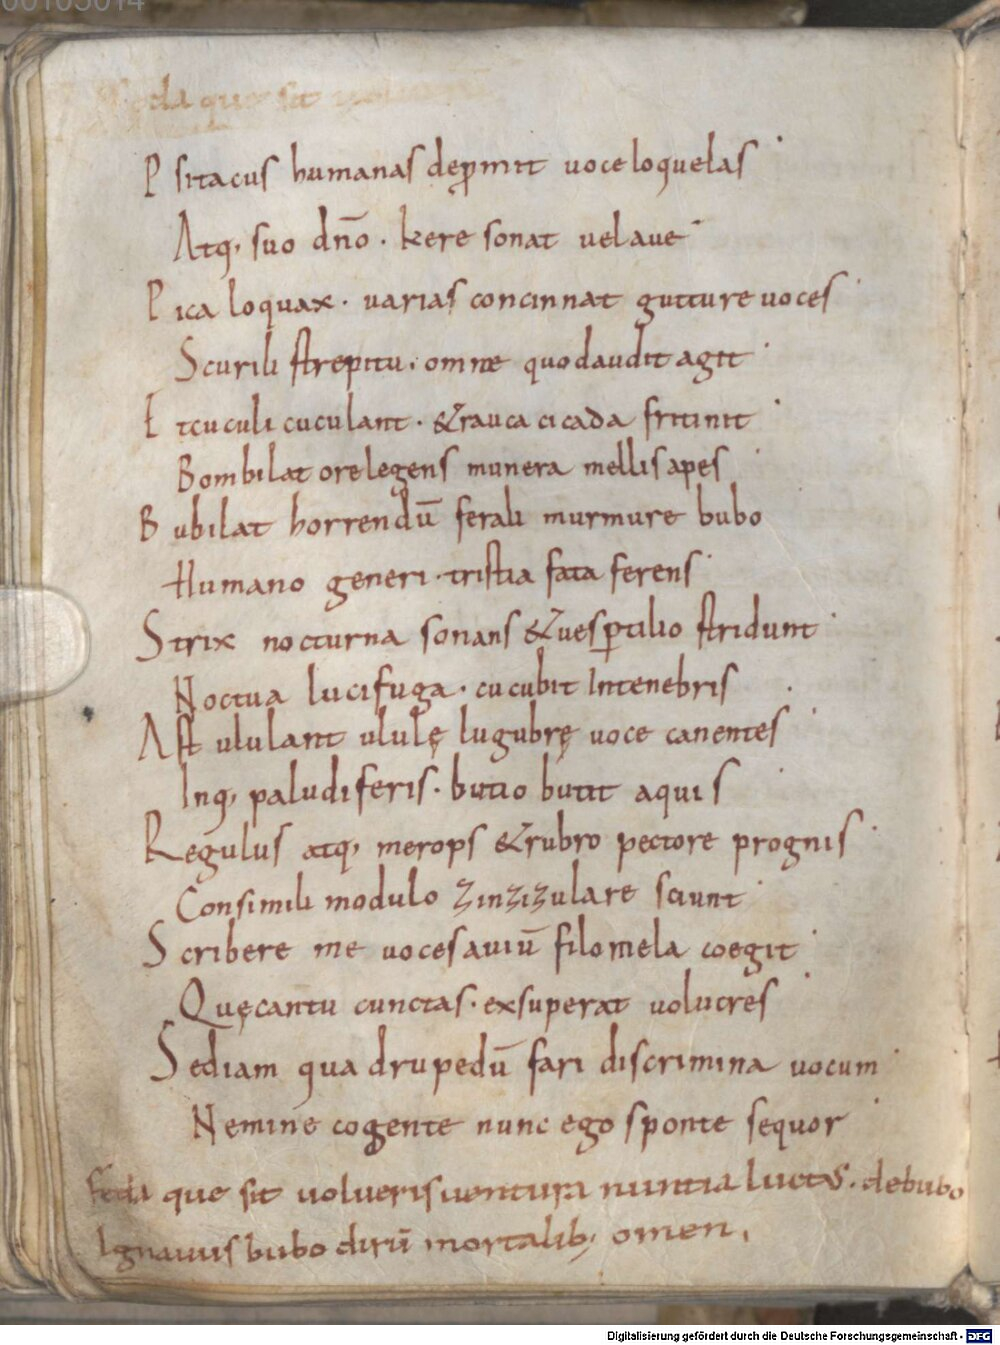 00105014
eda que sit
Psitacus humanas deꝓmit voce loquelas
Atq; suo dño. kere sonat uel aue
Pica loquax. varias concinnat gutture voces
Scurili strepitu. omne quod audit agit
Et cuculi cuculant. & rauca cicada fritinit
Bombilat ore legens munera mellis apes
Bubilat horrendū ferali murmure bubo
Humano generi. tristia fata ferens
Strix nocturna sonans & uesꝑtilio stridunt
Noctua lucifuga. cucubit Intenebris
Ast ululant ululę lugubrę uoce canentes
Inq; paludiferis. butio butit aquis
Regulus atq; merops & rubro pectore prognis
Consimili modulo zinzizulare sciunt
Scribere me uoces auiū filomela coegit
Quę cantu cunctas. exsuperat volucres
Sed iam quadrupedū fari discrimina uocum
Nemine cogente nunc ego sponte sequor
feda que sit uolueris uentura nuntia luctus. de bubo
Ignauus bubo dirū mortalib; omen.
Digitalisierung gefördert durch die Deutsche Forschungsgemeinschaft - DFG